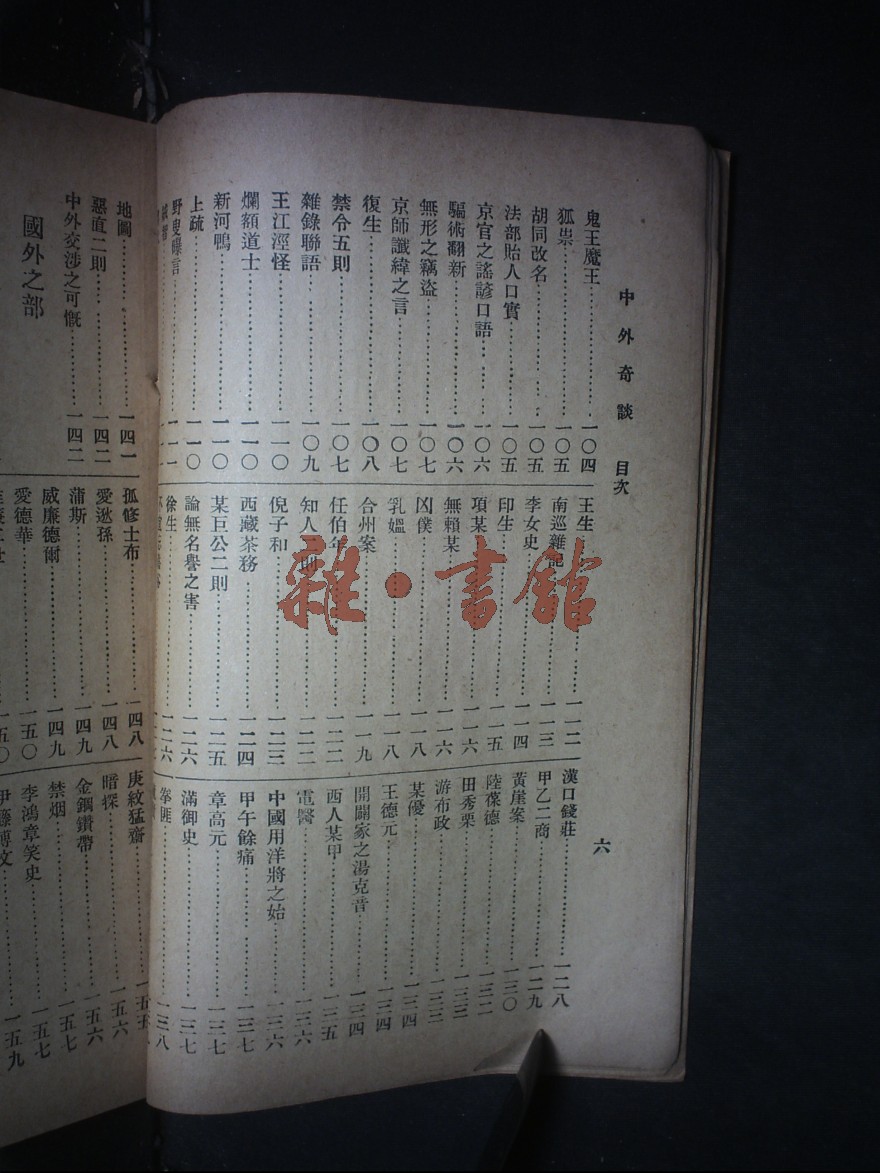 中外奇談 目次
六
鬼王魔王 一〇四
狐祟 一〇五
胡同改名 一〇五
法部貽人口實 一〇五
京官之謠諺口語 一〇六
騙術翻新 一〇六
無形之竊盜 一〇七
京師讖緯之言 一〇七
復生 一〇八
禁令五則 一〇七
雜錄聯語 一〇九
王江涇怪 一一〇
爛額道士 一一〇
新河鴨 一一〇
上疏 一一〇
野叟曝言 一一一
王生 一一二
南巡雜記 一一三
李女史 一一四
印生 一一五
項某 一一六
無賴某 一一六
凶僕 一一八
乳媼 一一八
合州案 一一九
任伯年 一二二
知人 則 一二二
倪子和 一二三
西藏茶務 一二四
某巨公二則 一二五
論無名譽之害 一二六
徐生 一二六
漢口錢莊 一二八
甲乙二商 一二九
黃崖案 一三〇
陸葆德 一三二
田秀栗 一三三
游布政 一三三
某優 一三四
王德元 一三四
開闢家之湯克音 一三四
西人某甲 一三五
電醫 一三六
中國用洋將之始 一三六
甲午餘痛 一三七
章高元 一三七
滿御史 一三七
拳匪 一三八
地圖 一四一
惡直二則 一四二
中外交涉之可慨 一四二
國外之部
孤修士布 一四八
愛逖孫 一四八
蒲斯 一四九
威廉德爾 一四九
愛德華 一五〇
五〇
庚紋猛齋 一五五
暗探 一五六
金鋼鑽帶 一五六
禁烟 一五七
李鴻章笑史 一五七
伊藤博文 一五九
雜·書館